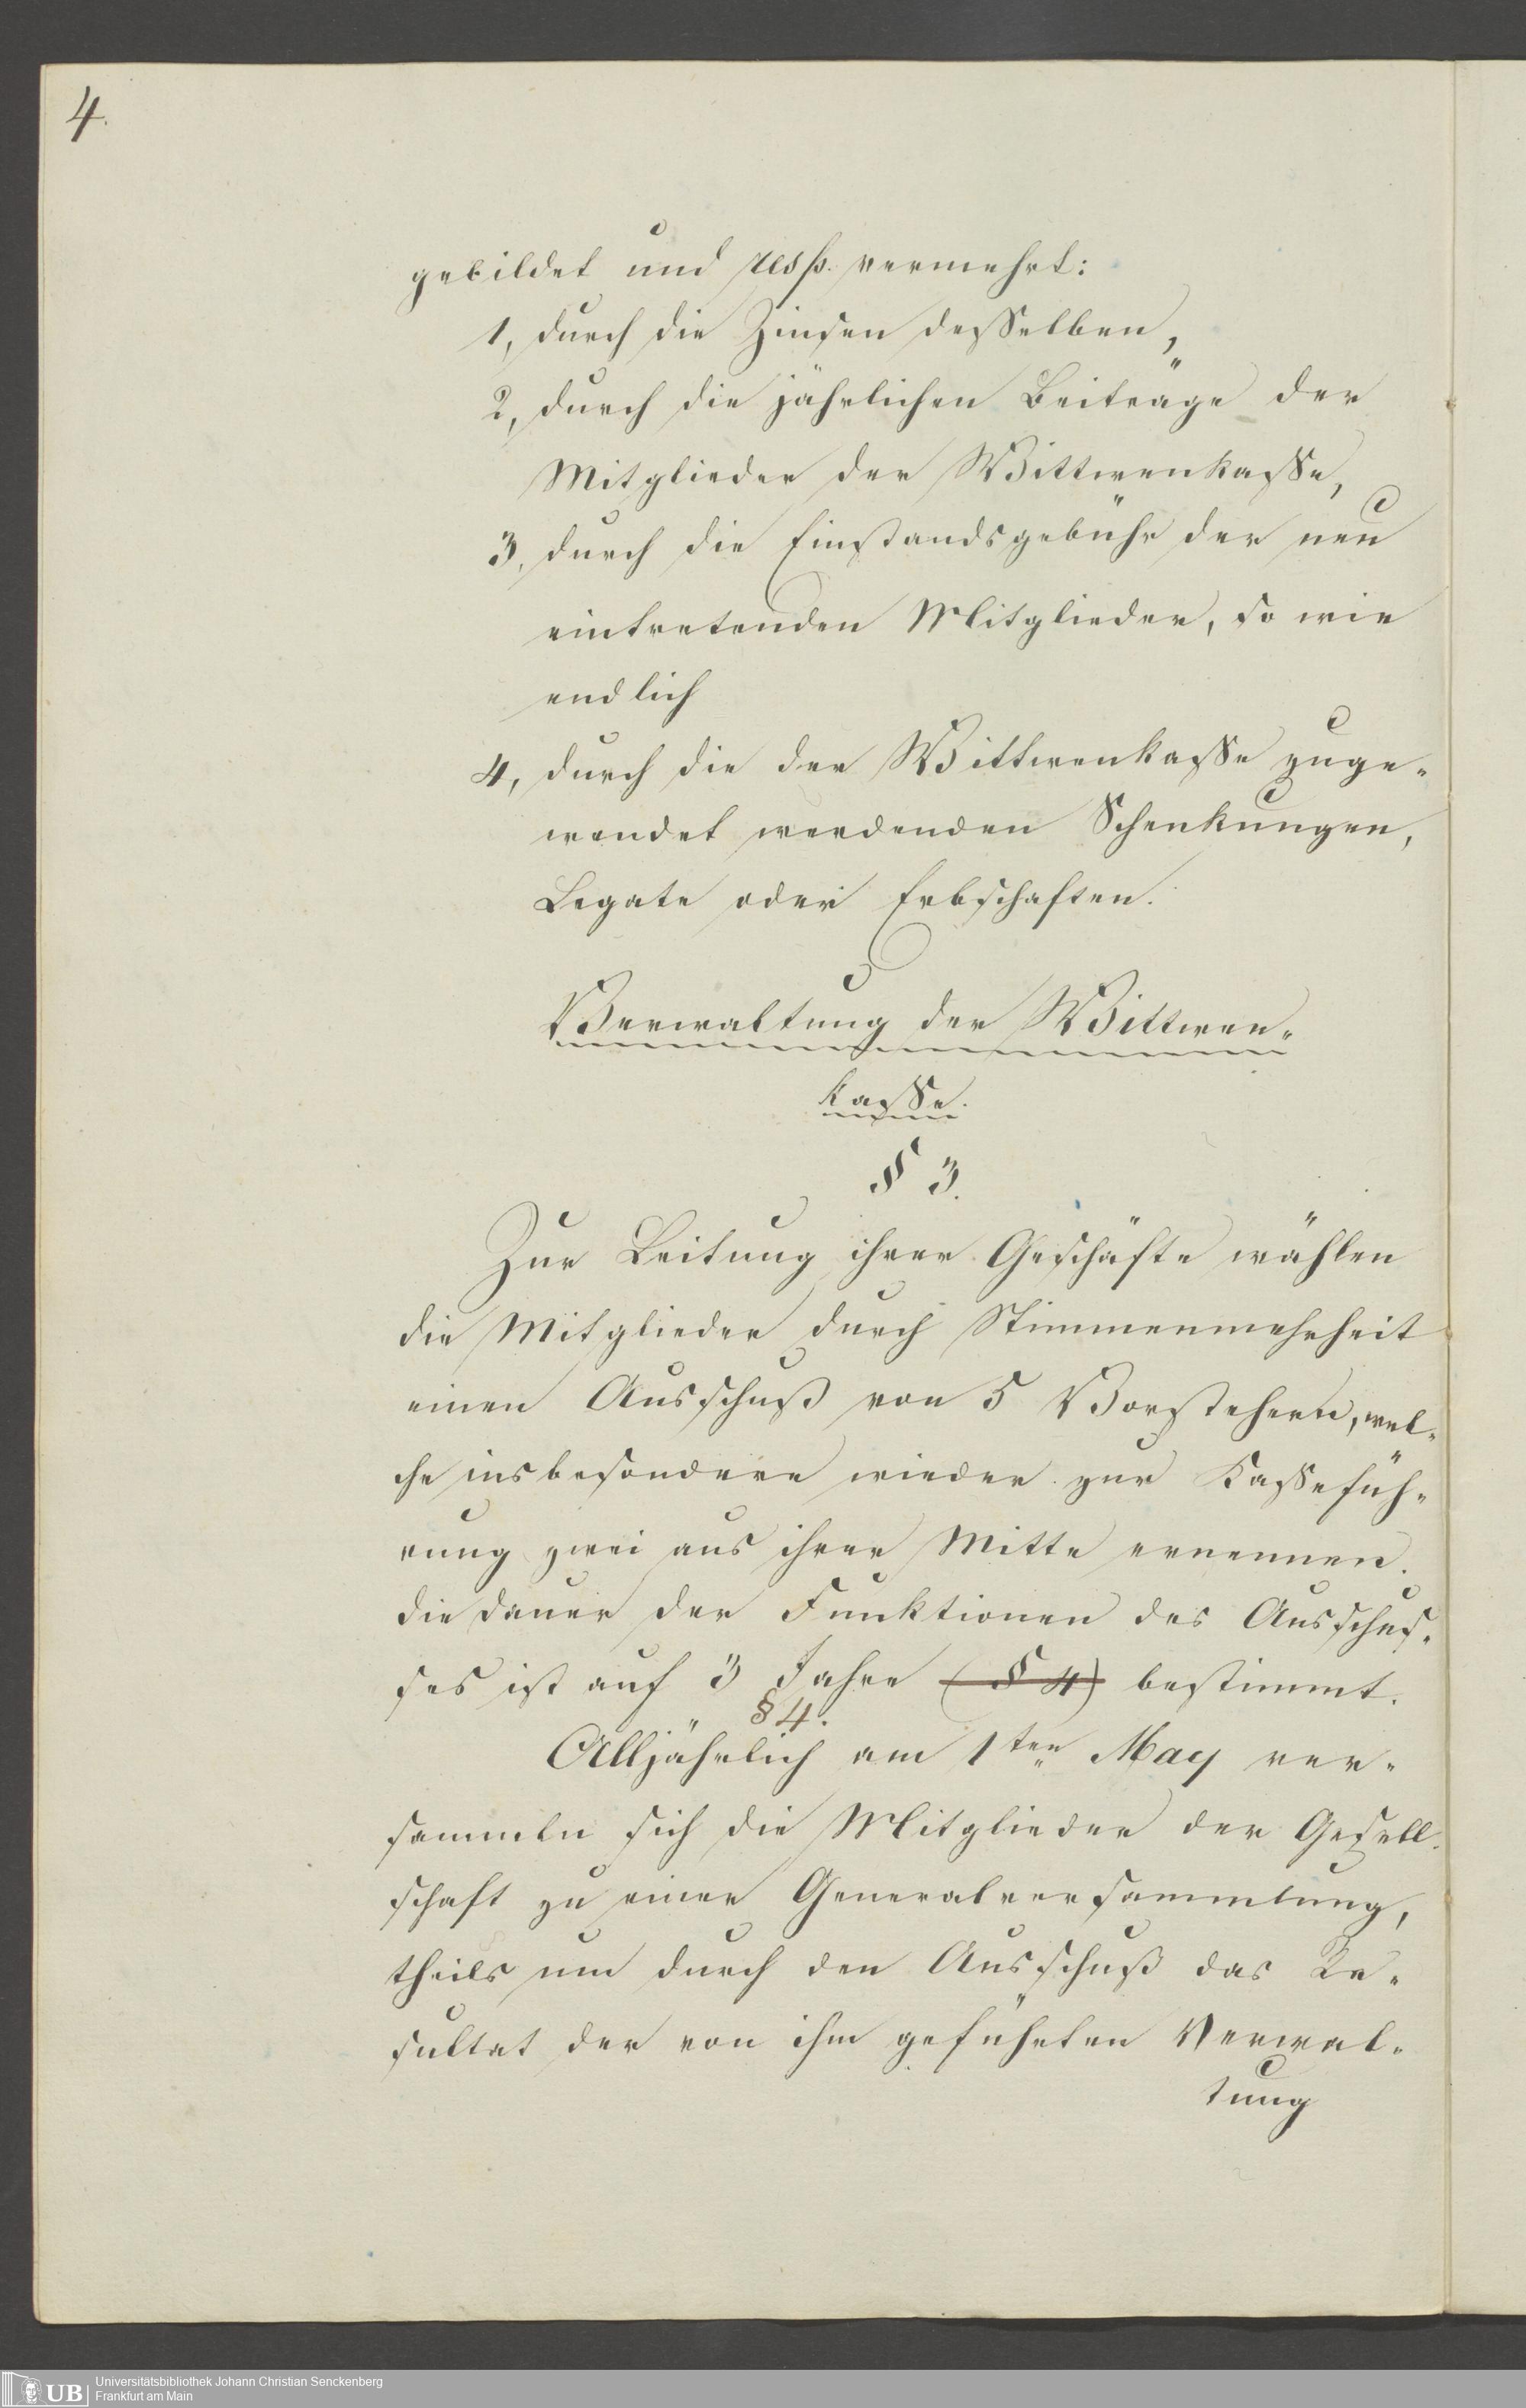 4.
gebildet und resp. vermehrt:
1, durch die Zinsen desselben,
2, durch die jährlichen Beiträge der
Mitglieder der Wittwenkasse,
3, durch die Einstandsgebühr der neu
eintretenden Mitglieder, so wie
endlich
4, durch die der Wittwenkasse zuge-
wendet werdenden Schenkungen,
Legate oder Erbschaften.
Verwaltung der Wittwen-
kasse.
§ 3.
Zur Leitung ihrer Geschäfte wählen
die Mitglieder durch Stimmenmehrheit
einen Ausschuß von 5 Vorstehern, wel-
che insbesondere wieder zur Kassefüh-
rung zwei aus ihrer Mitte ernennen.
die Dauer der Funktionen des Ausschus-
ses ist auf 3 Jahre (§ 4) bestimmt.
§ 4.
Alljährlich am 1ten May ver-
sammeln sich die Mitglieder der Gesell-
schaft zu einer Generalversammlung,
theils um durch den Ausschuß das Re-
sultat der von ihm geführten Verwal-
tung
UB
Universitätsbibliothek Johann Christian Senckenberg
Frankfurt am Main